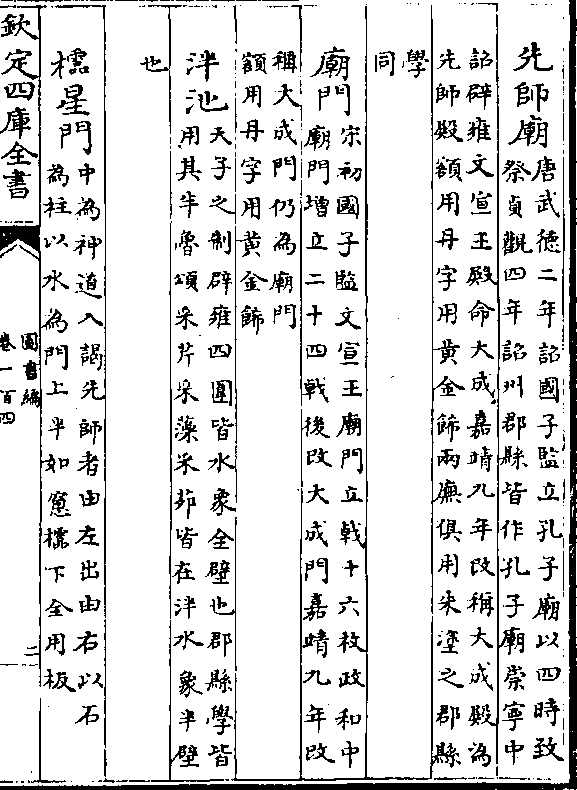 先師廟
唐武德二年詔國子監立孔子廟以四時致
祭貞觀四年詔州郡縣皆作孔子廟崇寧中
詔辟雍文宣王殿命大成嘉靖九年改稱大成殿為
先師殿額用丹字用黄金飾兩廡俱用朱塗之郡縣
學
同
廟門
宋初國子監文宣王廟門立㦸十六枚政和中
廟門增立二十四㦸後改大成門嘉靖九年改
稱大成門仍為廟門
額用丹字用黄金飾
泮池
天子之制辟雍四圍皆水象全璧也郡縣學皆
用其半魯頌采芹采藻采茆皆在泮水象半璧
也
櫺星門
中為神道入謁先師者由左出由右以石
為柱以水為門上半如窻櫺下全用板
欽定四庫全書
圖書編
卷一百四
二